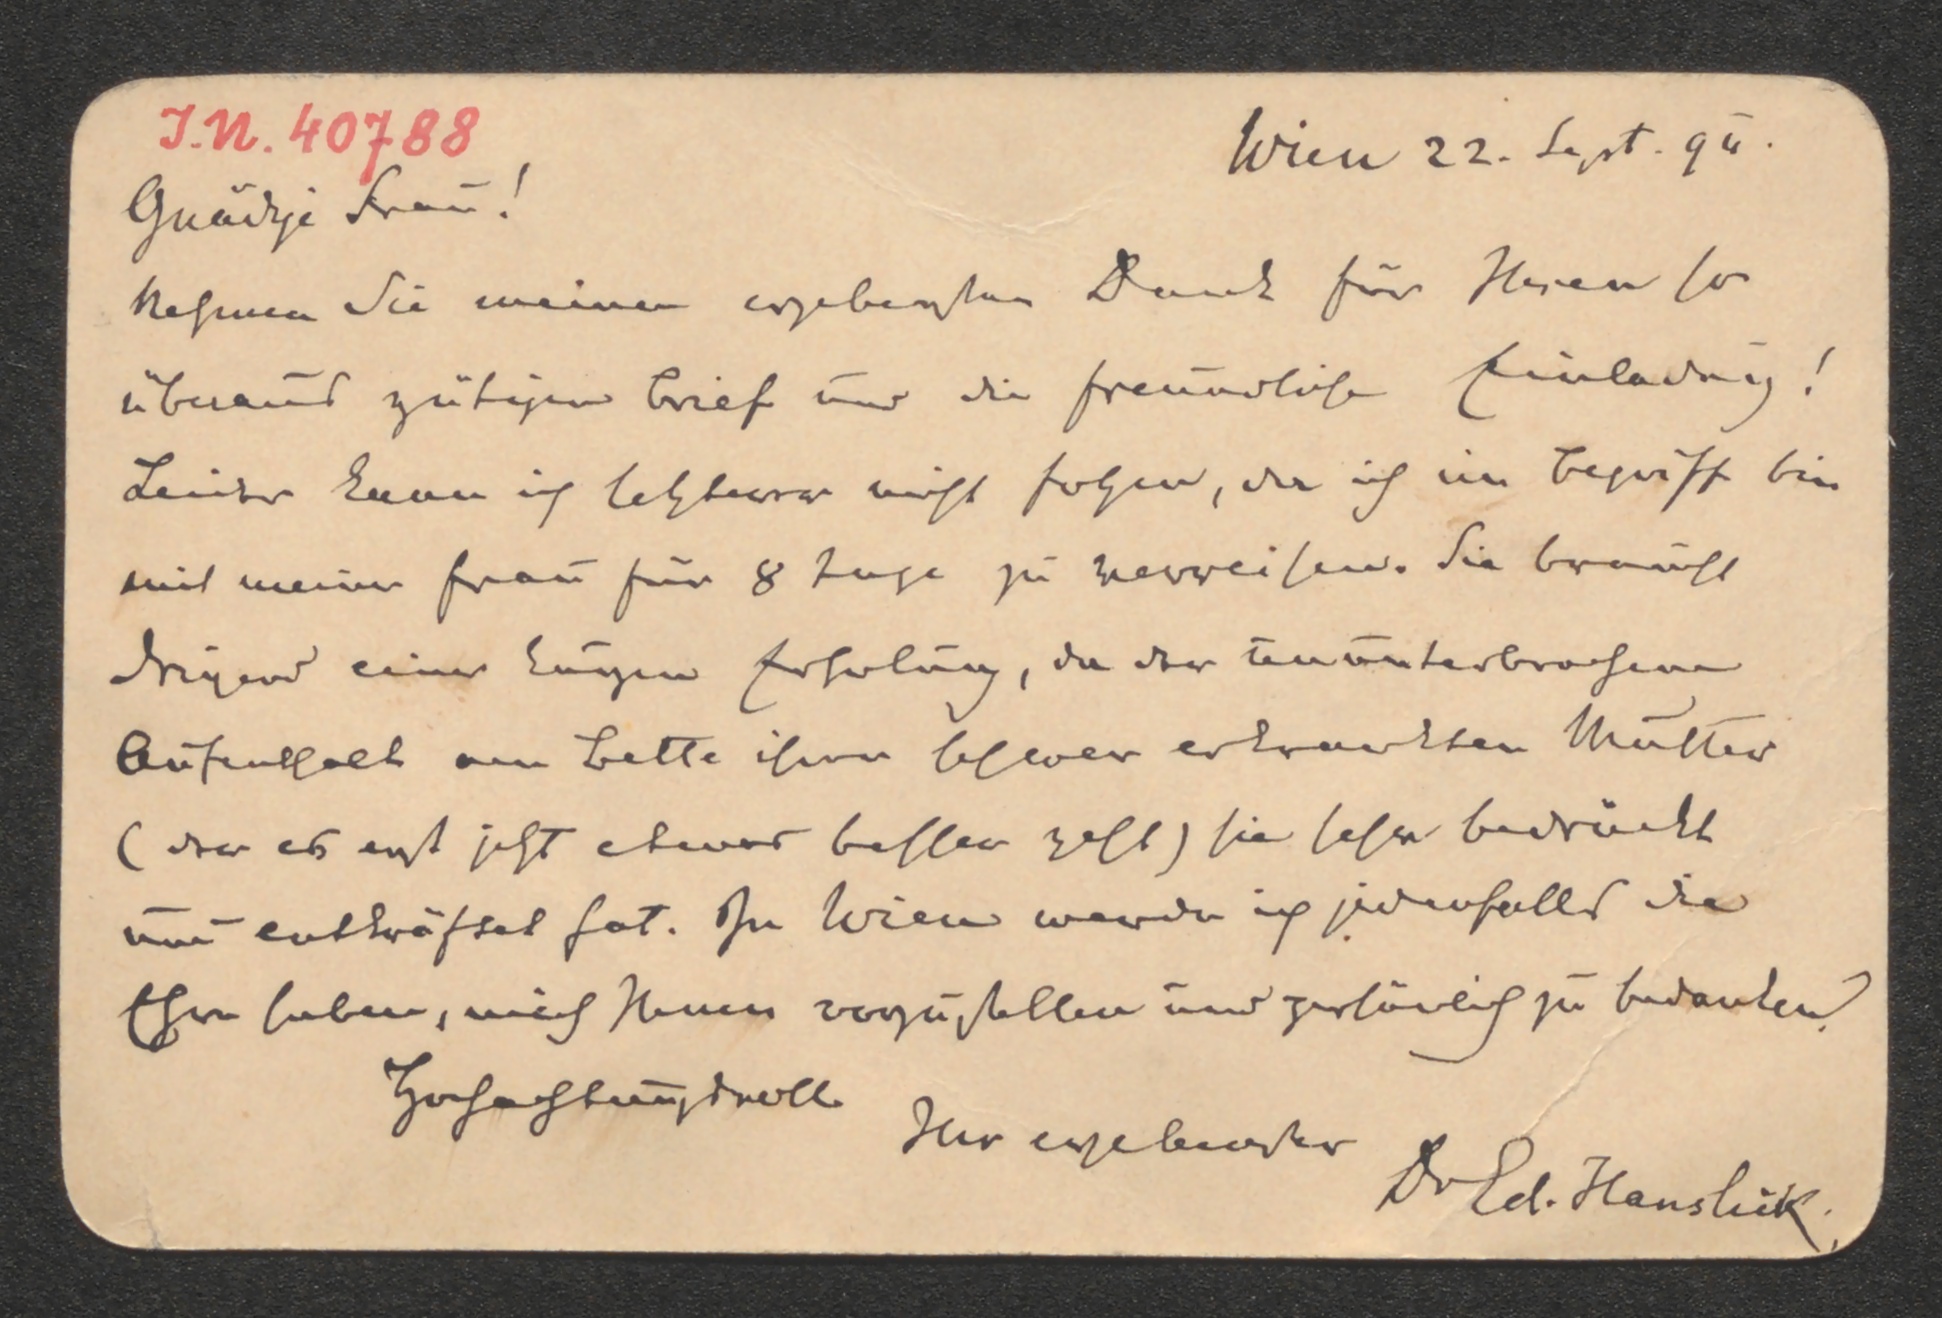 I.N. 40788
Wien 22. Sept. 94.
Gnädige Frau!
Nehmen Sie meinen ergebensten Dank für Ihren so
überaus gütigen Brief und die freundliche Einladung!
Leider kann ich letzterer nicht folgen, da ich im Begriff bin
mit meiner Frau für 8 Tage zu verreisen. Sie braucht
dringend einer kurzen Erholung, da der ununterbrochene
Aufenthalt am Bette ihrer schwer erkrankten Mutter
(der es erst jetzt etwas besser geht) sie sehr bedrückt
und entkräftet hat. In Wien werde ich jedenfalls die
Ehre haben, mich Ihnen vorzustellen und persönlich zu bedanken.
Hochachtungsvoll
Ihr ergebenster
Dr Ed. Hanslick.